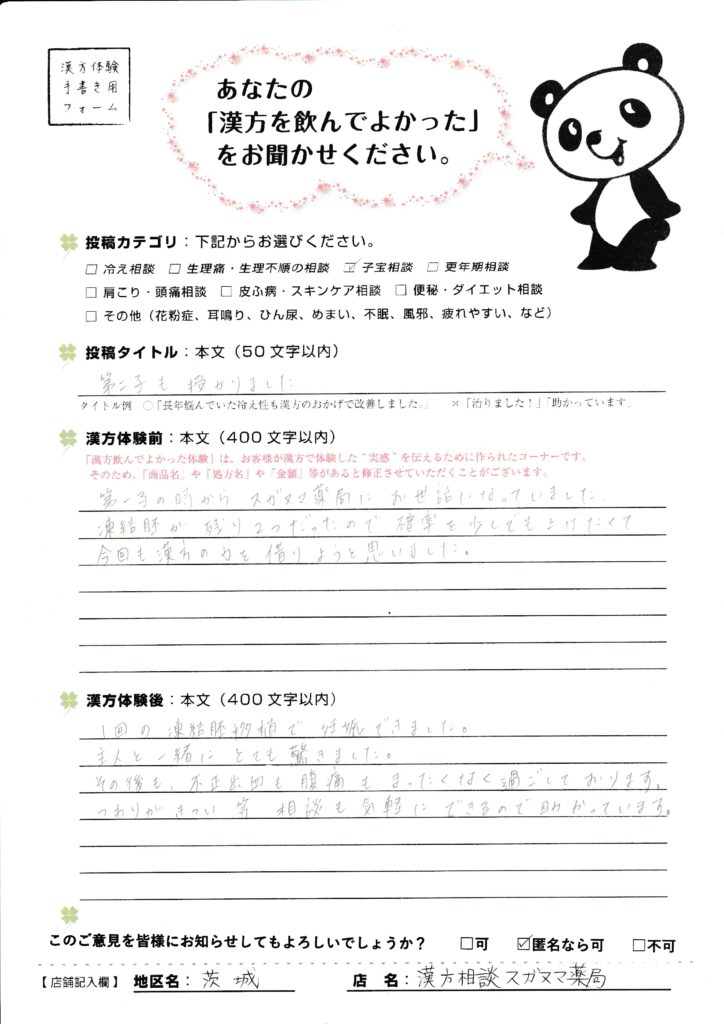 漢方体験
手書き用
フォーム
あなたの
「漢方を飲んでよかった」
をお聞かせください。
投稿カテゴリ：下記からお選びください。
□ 冷え相談 □ 生理痛・生理不順の相談 ☑ 子宝相談 □ 更年期相談
□ 肩こり・頭痛相談 □ 皮ふ病・スキンケア相談 □ 便秘・ダイエット相談
□ その他（花粉症、耳鳴り、ひん尿、めまい、不眠、風邪、疲れやすい、など）
投稿タイトル：本文（50文字以内）
第二子も授かりました.
タイトル例 ○「長年悩んでいた冷え性も漢方のおかげで改善しました。」 ×「治りました！」「助かっています」
漢方体験前：本文（400文字以内）
「漢方飲んでよかった体験」は、お客様が漢方で体験した“実感”を伝えるために作られたコーナーです。
そのため、「商品名」や「処方名」や「金額」等があると修正させていただくことがございます。
第一子の時から スガヌマ薬局に お世話になっていました.
凍結胚が 残り2つだったので 確率を少しでも上げたくて
今回も漢方の力を借りようと思いました。
漢方体験後：本文（400文字以内）
1回の凍結胚移植で妊娠できました。
主人と一緒に とても驚きました。
その後も、不正出血も腹痛もまったくなく過ごしております。
つわりがきつい 等 相談も気軽にできるので助かっています。
このご意見を皆様にお知らせしてもよろしいでしょうか？ □可 ☑匿名なら可 □不可
【店舗記入欄】 地区名：茨城 店 名：漢方相談スガヌマ薬局